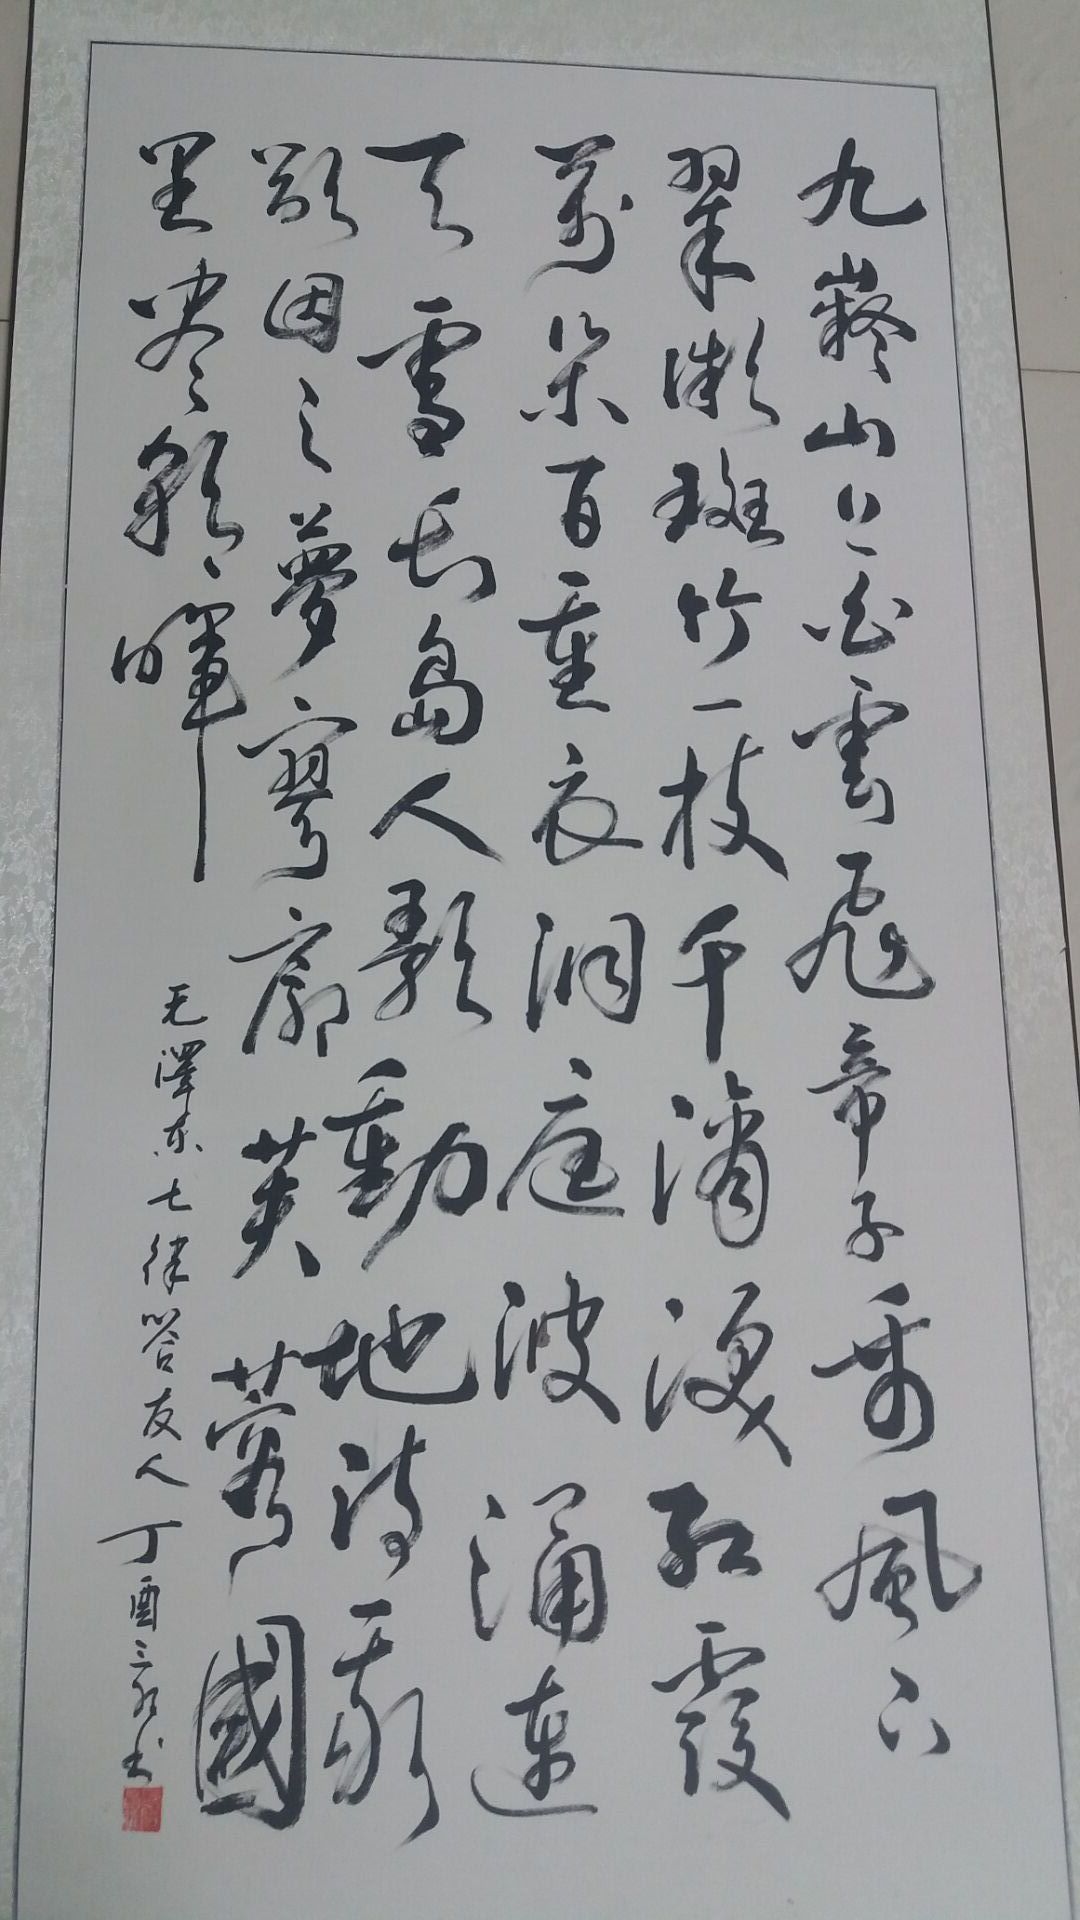 九嶷山上白雲飛帝子乘風下
翠微斑竹一枝千滴淚紅霞
萬朵百重衣洞庭波涌連
天雪長島人歌動地詩我
欲因之夢寥廓芙蓉國
里尽朝暉
毛澤东七律答友人丁酉书